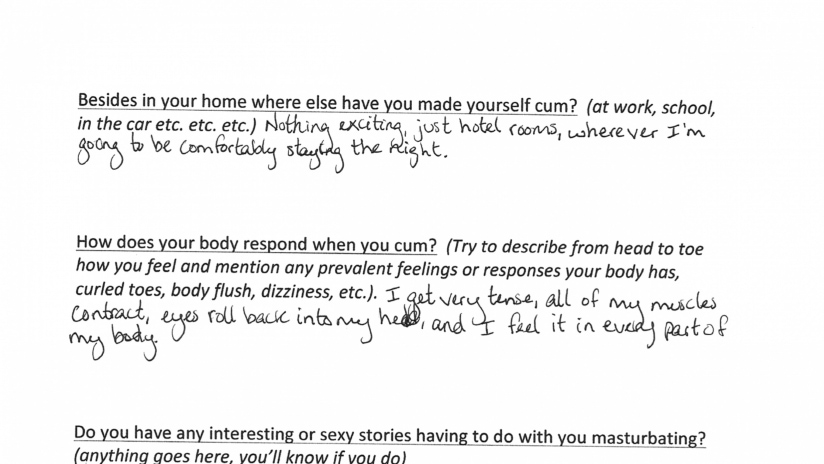 Besides in your home where else have you made yourself cum? (at work, school,
in the car etc. etc. etc.) Nothing exciting, just hotel rooms, wherever I'm
going to be comfortably staying the night.
How does your body respond when you cum? (Try to describe from head to toe
how you feel and mention any prevalent feelings or responses your body has,
curled toes, body flush, dizziness, etc.). I get very tense, all of my muscles
contract, eyes roll back into my head, and I feel it in every part of
my body.
Do you have any interesting or sexy stories having to do with you masturbating?
(anything goes here, you'll know if you do)